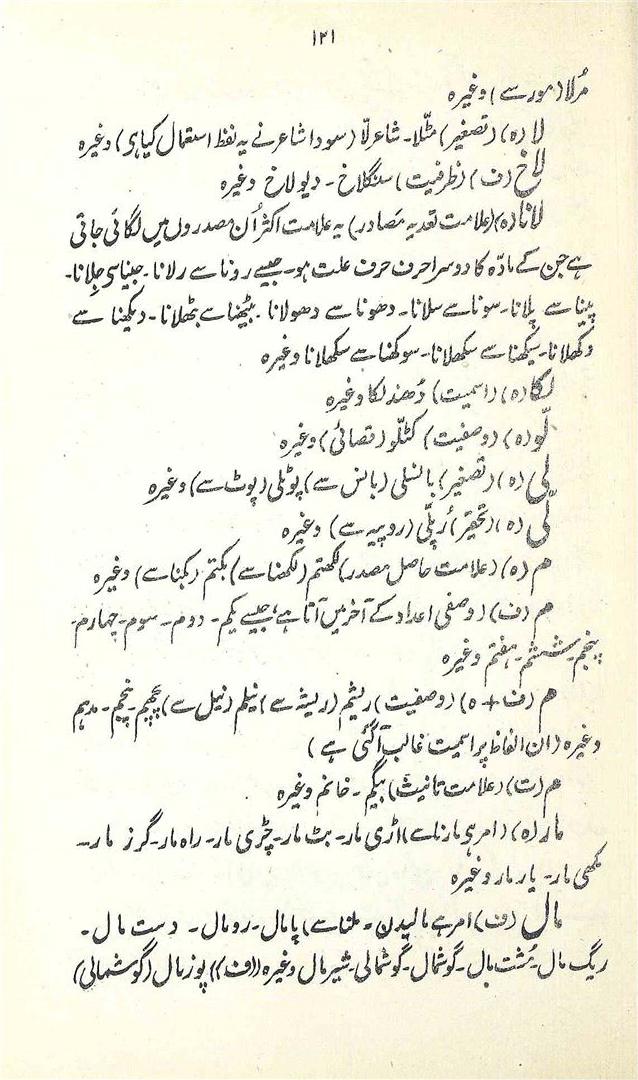 ۱۲۱
مُرلا (مور سے) وغیرہ
لا (ہ) (تصغیر) مثلاً۔ شاعرلّا (سودا شاعر نے یہ لفظ استعمال کیا ہی) وغیرہ
لاخ (ف) (ظرفیت) سنگلاخ۔ دیولاخ وغیرہ
لانا (ہ) (علامت تعدیہ مَصَادر) یہ علامت اکثر اُن مصدروں میں لگائی جاتی
ہے جن کے مادّہ کا دوسرا حرف حرف علت ہو۔ جیسے رونا سے رلانا۔ جینا سی جِلانا۔
پینا سے پلانا۔ سونا سے سلانا۔ دھونا سے دھولانا۔ بیٹھنا سے بٹھلانا۔ دیکھنا سے
دکھلانا۔ سیکھنا سے سکھلانا۔ سوکھنا سے سکھلانا وغیرہ
لکا (ہ) (اسمیت) دُھندلکا وغیرہ
لّو (ہ) (وصفیت) کٹلّو (قصائی) وغیرہ
لی (ہ) (تصغیر) بانسلی (بانس سے) پوٹلی (پوٹ سے) وغیرہ
لّی (ہ) (تحقیر) رُپلّی (روپیہ سے) وغیرہ
م (ہ) (علامت حاصل مصدر) لکھتم (لکھنا سے) بکتم (بکنا سے) وغیرہ
م (ف) (وصفی اعداد کے آخر میں آتا ہے، جیسے یکم۔ دوم۔ سوم۔ چہارم۔
پنجم۔ ششم۔ ہفتم وغیرہ
م (ف + ہ) (وصفیت) ریشم (ریشہ سے) نیلم (نیل سے) پچھم۔ پنچم۔ مدہم
وغیرہ (ان الفاظ پر اسمیت غالب آگئی ہے)
م (ت) (علامت تانیث) بیگم۔ خانم وغیرہ
مار (ہ) (امر ہی مارنا سے) اڑی مار۔ بٹ مار۔ چڑی مار۔ راہ مار۔ گرز مار۔
مکھی مار۔ یار مار وغیرہ
مال (ف) امر ہے مالیدن۔ ملنا سے) پامال۔ رومال۔ دست مال۔
ریگ مال۔ مُشت مال۔ گوشمال۔ گوشمالی۔ شیرمال وغیرہ ((ف)) پوزمال (گوشمالی)